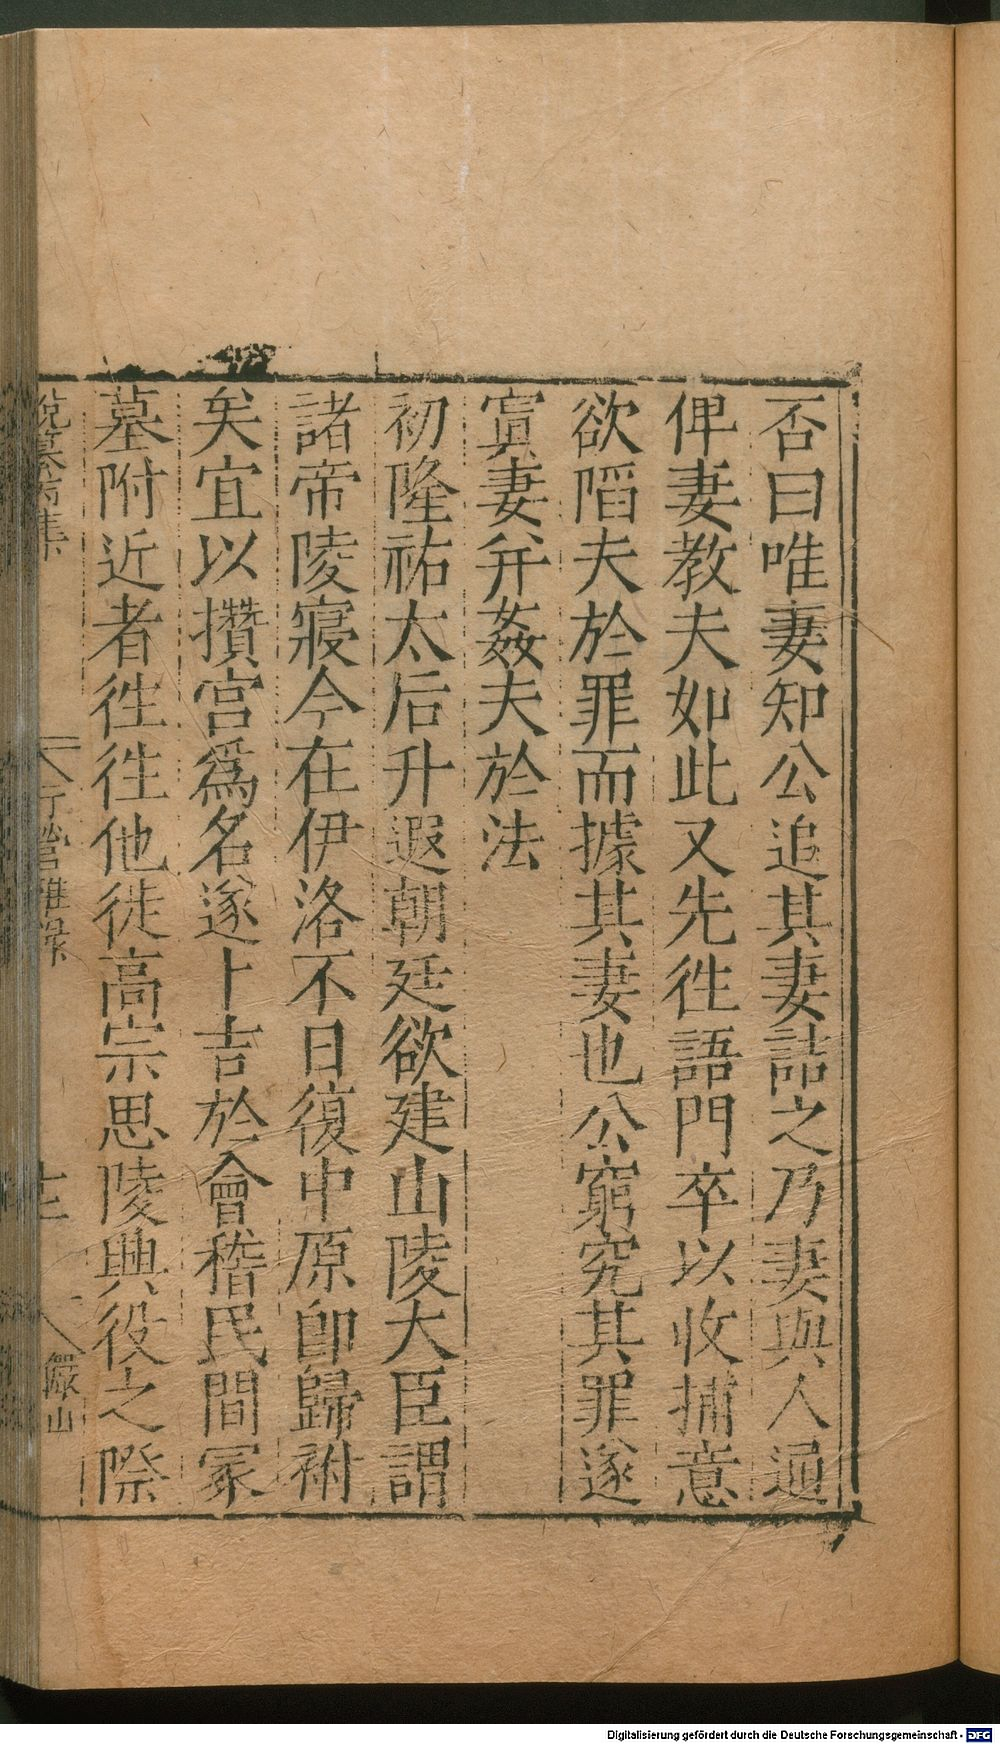 否曰唯妻知公追其妻詰之乃妻與人通
俾妻教夫如此又先徃語門卒以收捕意
欲陷夫於罪而據其妻也公窮究其罪遂
寘妻并姦夫於法
初隆祐太后升遐朝廷欲建山陵大臣謂
諸帝陵寢今在伊洛不日復中原卽歸祔
矣宜以攢宮爲名遂卜吉於會稽民間冢
墓附近者徃徃他徙高宗思陵興役之際
說纂
集
行營雜錄
十三
儼山
Digitalisierung gefördert durch die Deutsche Forschungsgemeinschaft - DFG